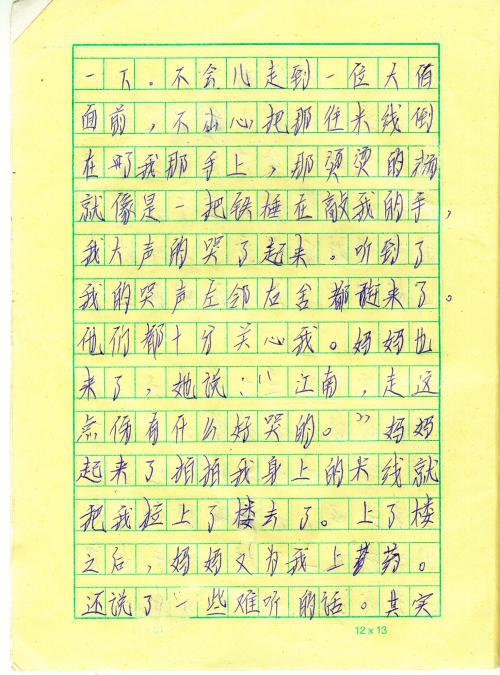 一下。不会儿走到一位大值
面前，不小心把那往米线倒
在了我那手上，那烫烫的汤
就像是一把铁捶在敲我的手，
我大声的哭了起来。听到了
我的哭声左邻右舍都赶来了。
他们都十分关心我。妈妈也
来了，她说：“江南，走这
点伤有什么好哭的。”妈妈
起来了拍拍我身上的米线就
把我拉上了楼去了。上了楼
之后，妈妈又为我上药。
还说了一些难听的话。其实
12×13